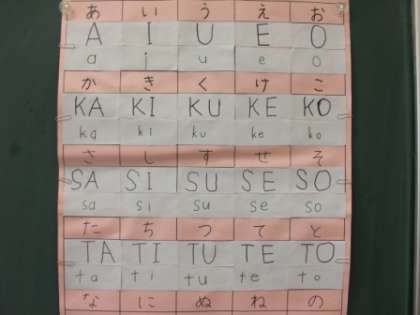 あ い う え お
A I U E O
a i u e o
か き く け こ
KA KI KU KE KO
ka ki ku ke ko
さ し す せ そ
SA SI SU SE SO
sa si su se so
た ち つ て と
TA TI TU TE TO
ta ti tu te to
な に ぬ ね の